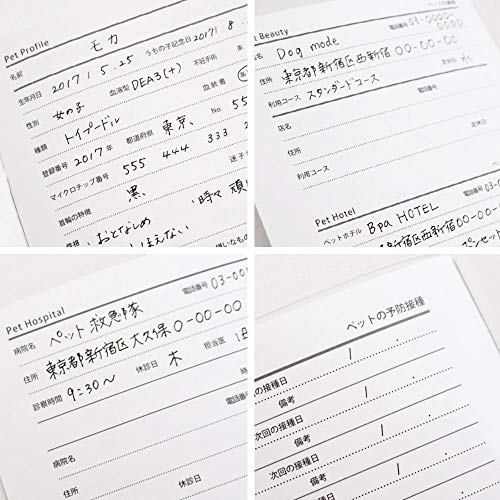 Pet Profile
名前 モカ
生年月日 2017 / 5 . 25 うちの子記念日 2017 / 8 .
性別 女の子 血液型 DEA3(+) 不妊手術 未
種類 トイプードル 血統書
登録番号 2017年 都道府県 東京、 No. 55
マイクロチップ番号 555 444 333 2
首輪の特徴 黒 迷子
性格 おとなしめ 時々 頑
ほえない
嫌いなもの
Pet Beauty
Dog mode 電話番号 03-0000-
0000
住所 東京都新宿区西新宿 00-00-00
利用コース スタンダードコース 定休日 水
店名 電話番号
住所
利用コース 定休日
Pet Hotel
ペットホテル Bpa HOTEL 電話番号 03-0000
新宿区西新宿00-00-0
Pet Hospital
病院名 ペット救急隊 電話番号 03-00
住所 東京都新宿区大久保 0-00-00
診察時間 9:30〜 休診日 木 担当医
病院名 電話番号
住所
休診日
ペットの予防接種
の接種日 / .
備考
次回の接種日 / .
備考
次回の接種日 / .
備考
次回の接種日 / .
備考